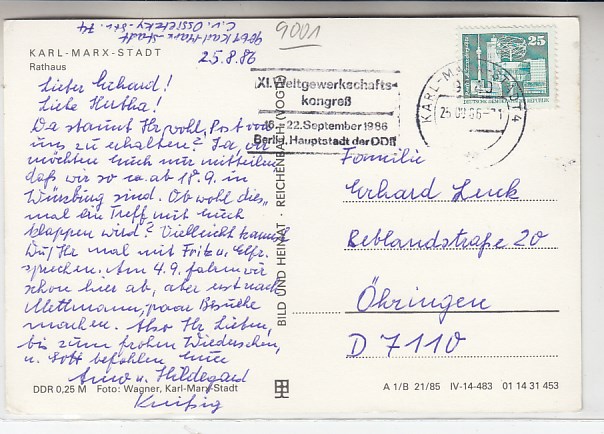 9001
C. v. Ossietzky-Str. 74
9061 Karl-Marx-Stadt
25.8.86
KARL-MARX-STADT
Rathaus
Lieber Erhard!
Liebe Hertha!
Da staunt Ihr wohl, Post von
uns zu erhalten? Ja, wir
möchten Euch nur mitteilen,
daß wir so ca. ab 18.9. in
Würzburg sind. Ob wohl dies-
mal ein Treff mit Euch
klappen wird? Vielleicht kannst
Du/Ihr mal mit Fritz u. Elfr.
sprechen. Am 4.9. fahren wir
schon hier ab, aber erst nach
Mettmann, paar Besuche
machen. Also Ihr Lieben,
bis zum frohen Wiedersehen,
u. Gott befohlen Eure
Arno u. Hildegard
Kreißig
DDR 0,25 M Foto: Wagner, Karl-Marx-Stadt
BILD UND HEIMAT · REICHENBACH (VOGTL)
XI. Weltgewerkschafts-
kongreß
16.-22. September 1986
Berlin, Hauptstadt der DDR
KARL-MARX-STADT 4
25
DEUTSCHE DEMOKRATISCHE REPUBLIK
Familie
Erhard Lenk
Reblandstraße 20
Öhringen
D 7110
A 1/B 21/85 IV-14-483 01 14 31 453